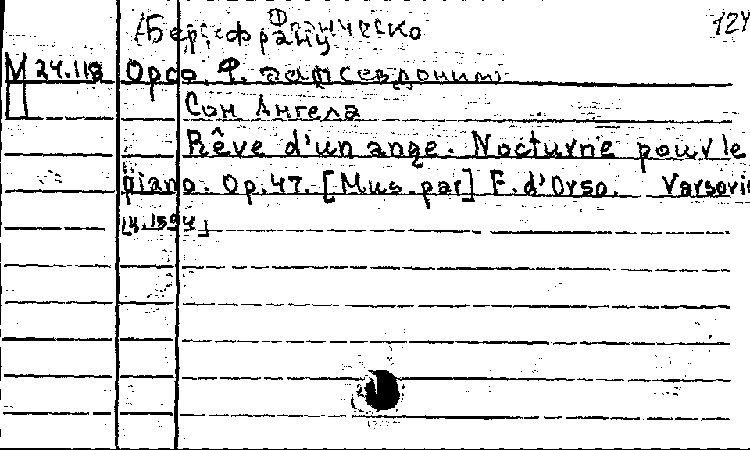 Франческо
(Бер, Франц 124
М 24.118 Орсо Ф. д' псевдоним
П Сон Ангела
Rêve d'un ange. Nocturne pour le
piano. Op. 47. [Mus. par] F. d'Orso. Varsovie